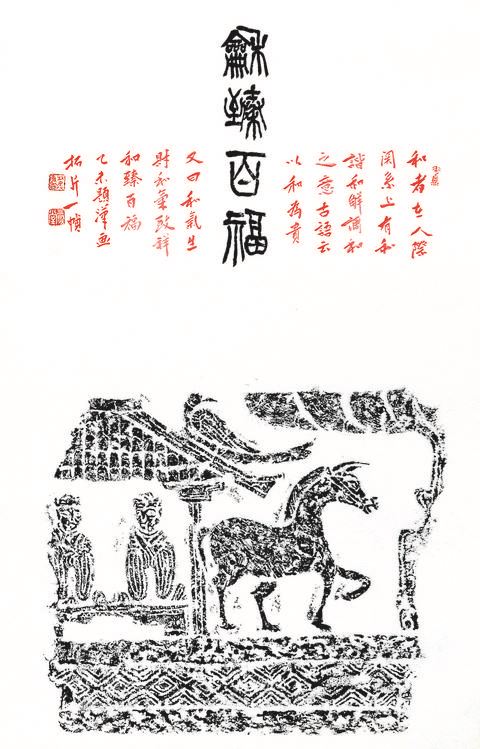 龢臻百福
和者在人際
関系上有和
諧和解調和
之意古語云
以和為貴
又曰和氣生
財和氣致祥
和臻百福
乙未題漢画
拓片一幀